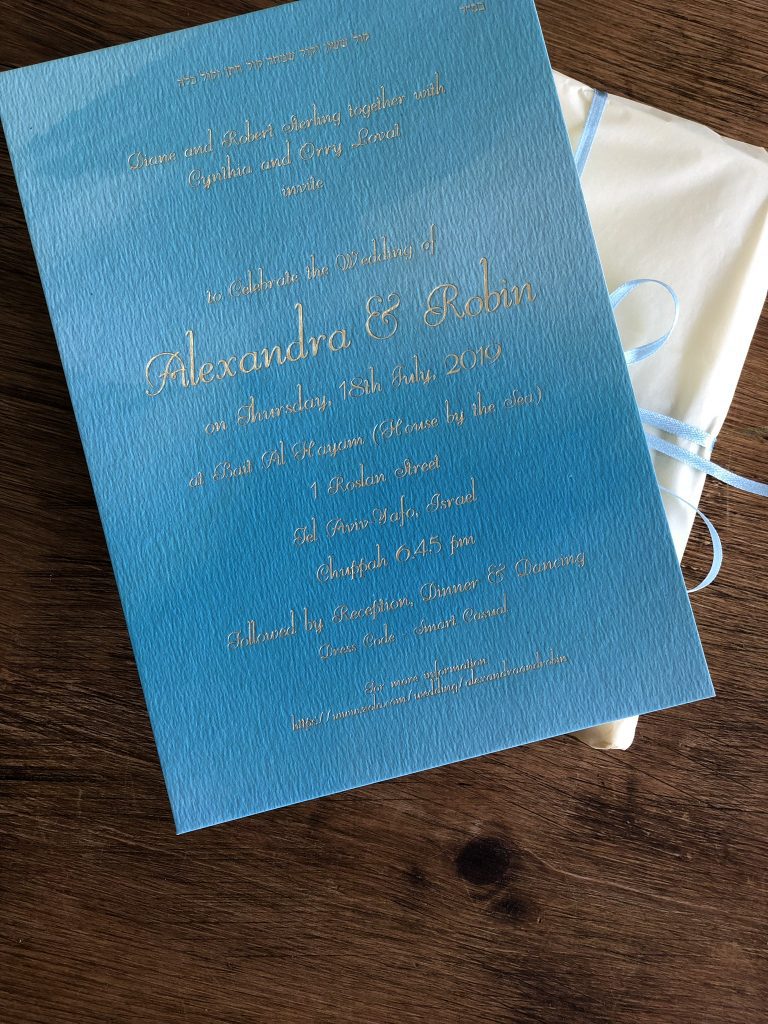 בס״ד
קול ששון וקול שמחה קול חתן וקול כלה
Diane and Robert Sterling together with
Cynthia and Orry Lovat
invite
to Celebrate the Wedding of
Alexandra & Robin
on Thursday, 18th July, 2019
at Bait Al Hayam (House by the Sea)
1 Roslan Street
Tel Aviv-Yafo, Israel
Chuppah 6.45 pm
Followed by Reception, Dinner & Dancing
Dress Code - Smart Casual
For more information:
https://www.zola.com/wedding/alexandraandrobin